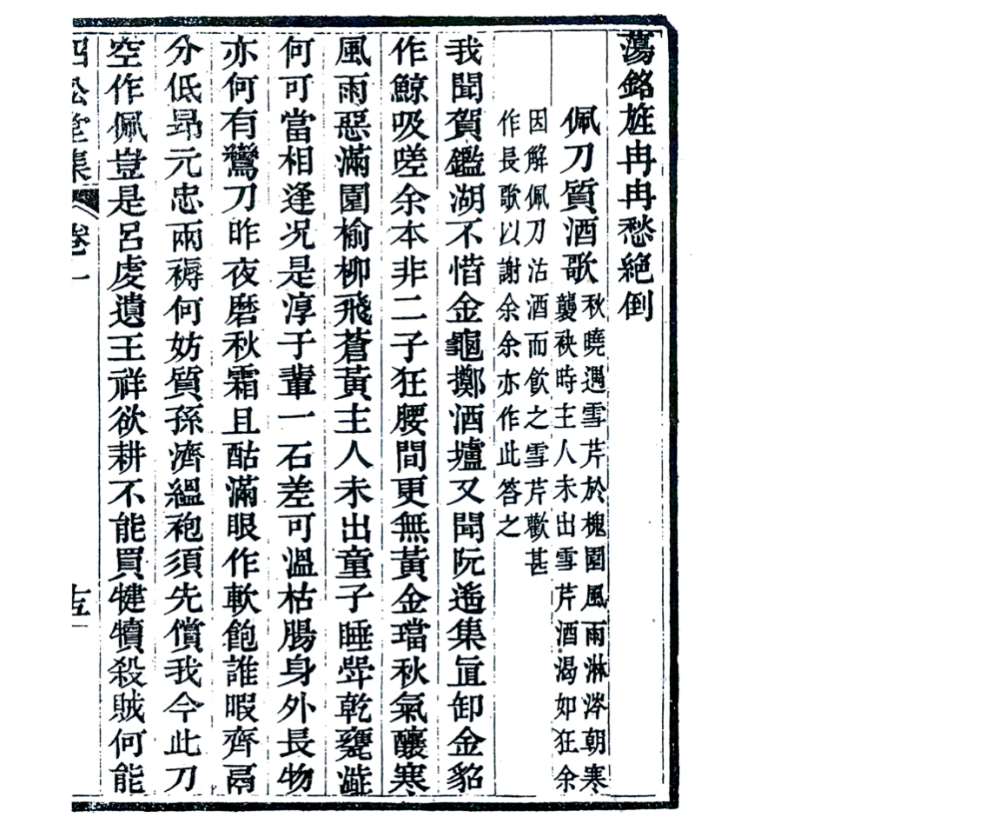 蕩銘旌冉冉愁絕倒
佩刀質酒歌
秋曉遇雪芹於槐園風雨淋涔朝寒
襲袂時主人未出雪芹酒渴如狂余
因解佩刀沽酒而飲之雪芹歡甚
作長歌以謝余余亦作此答之
我聞賀鑑湖不惜金龜擲酒壚又聞阮遙集直卸金貂
作鯨吸嗟余本非二子狂腰間更無黃金璫秋氣釀寒
風雨惡滿園榆柳飛蒼黃主人未出童子睡斝乾甕澁
何可當相逢况是淳于輩一石差可溫枯腸身外長物
亦何有鸞刀昨夜磨秋霜且酤滿眼作軟飽誰暇齊鬲
分低昻元忠兩褥何妨質孫濟縕袍須先償我今此刀
空作佩豈是呂虔遺王祥欲耕不能買犍犢殺賊何能
四松堂集 卷一 十五